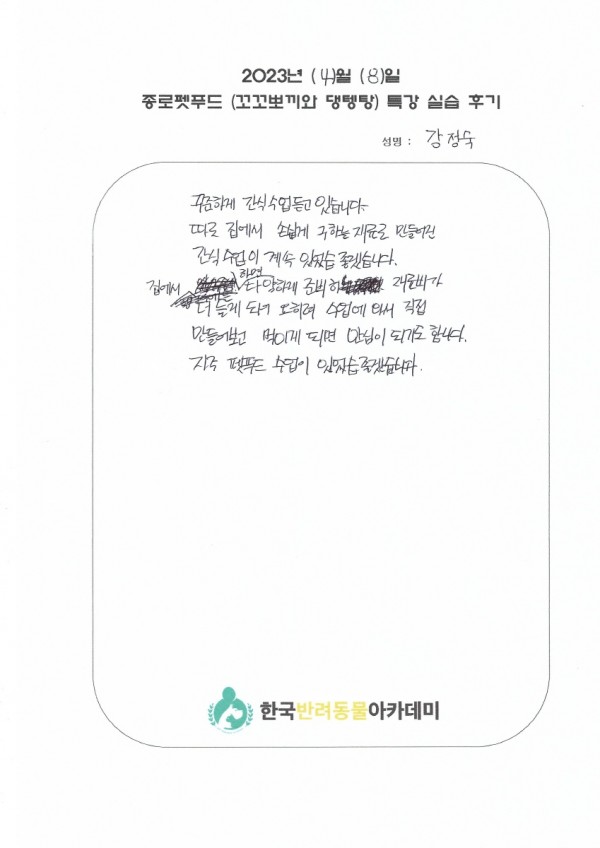 2023년 (4)월 (8)일
종로펫푸드 (꼬꼬뽀끼와 댕텡탕) 특강 실습 후기
성명 : 강정숙
꾸준하게 간식수업 듣고 있습니다.
따로 집에서 손쉽게 구하는 재료로 만들어진
간식 수업이 계속 있었습 좋겠습니다.
집에서 하면 다양하게 준비하 재료비가
더 들게 되어 오히려 수업에 와서 직접
만들어보고 먹이게 되면 안심이 되기도 합니다.
자주 펫푸드 수업이 있었습 좋겠습니다.
한국반려동물아카데미